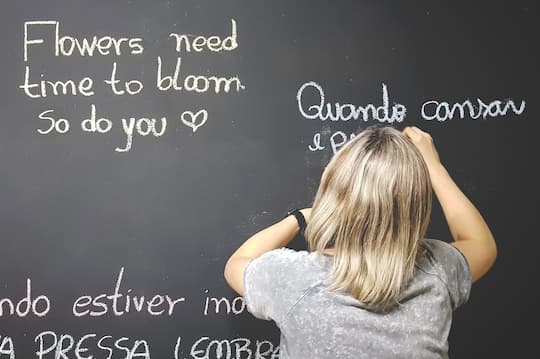 Flowers need
time to bloom.
So do you ♡
Quando cansar
e
ndo estiver
PRESSA LEMBRA